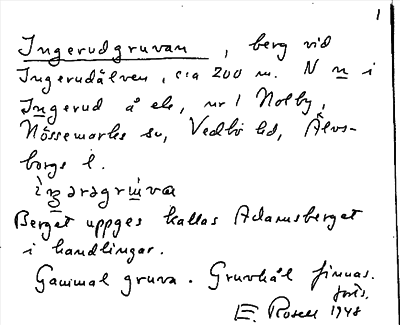 1
Ingerudgruvan, berg vid
Ingerudälven, c:a 200 m. N n i
Ingerud å ek, nr 1 Holby,
Nössemarks sn, Vedbo hd, Älvs-
borgs l.
Berget uppges kallas Adamsberget
i handlingar.
Gammal gruva. Gruvhål finnas.
E. Rosell 1948